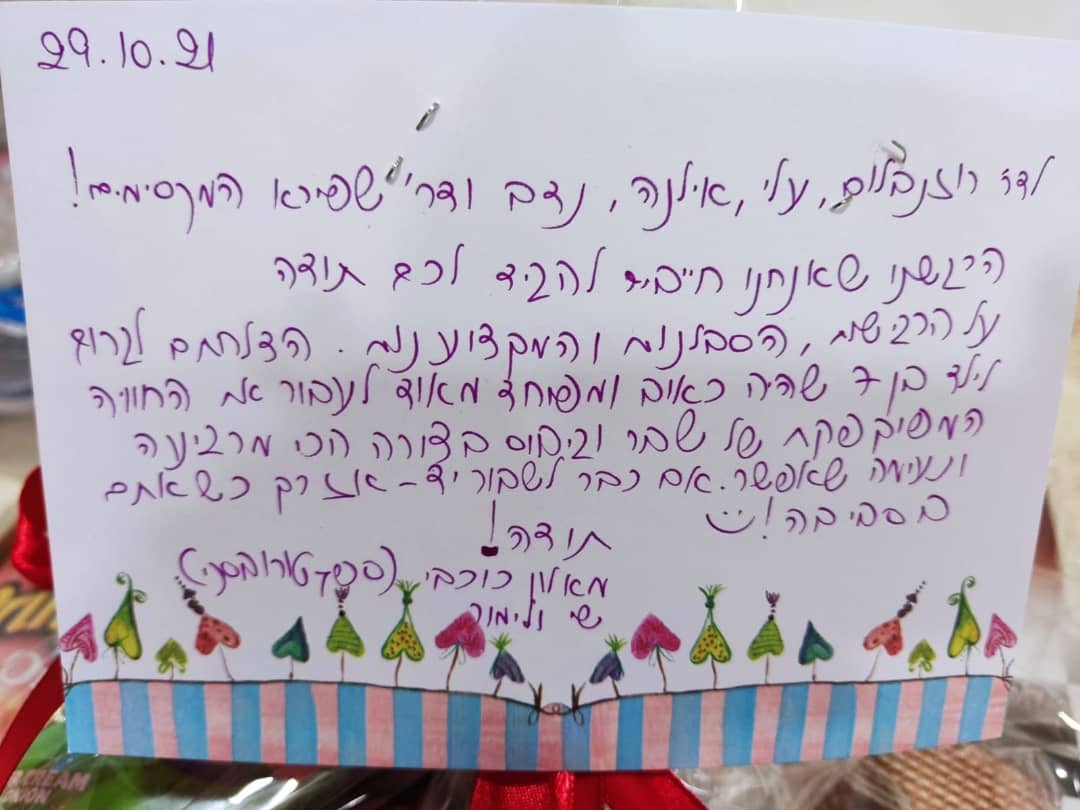 29.10.21
לדר' רוזנבלום, עלי, אילנה, נדב ודר' שפירא המקסימים!
הרגשתי שאנחנו חייבים להגיד לכם תודה
על הרגישות, הסבלנות והמקצועיות. הצלחתם לגרום
לילד בן 7 שהיה כאוב ומפוחד מאוד לעבור את החוויה
המפוקפקת של שבר וגיבוס בצורה הכי מרגיעה
ונעימה שאפשר. אם כבר לשבור יד - אז רק כשאתם
בסביבה!
תודה!
מאלון כוכבי
שי ולימור
CREAM